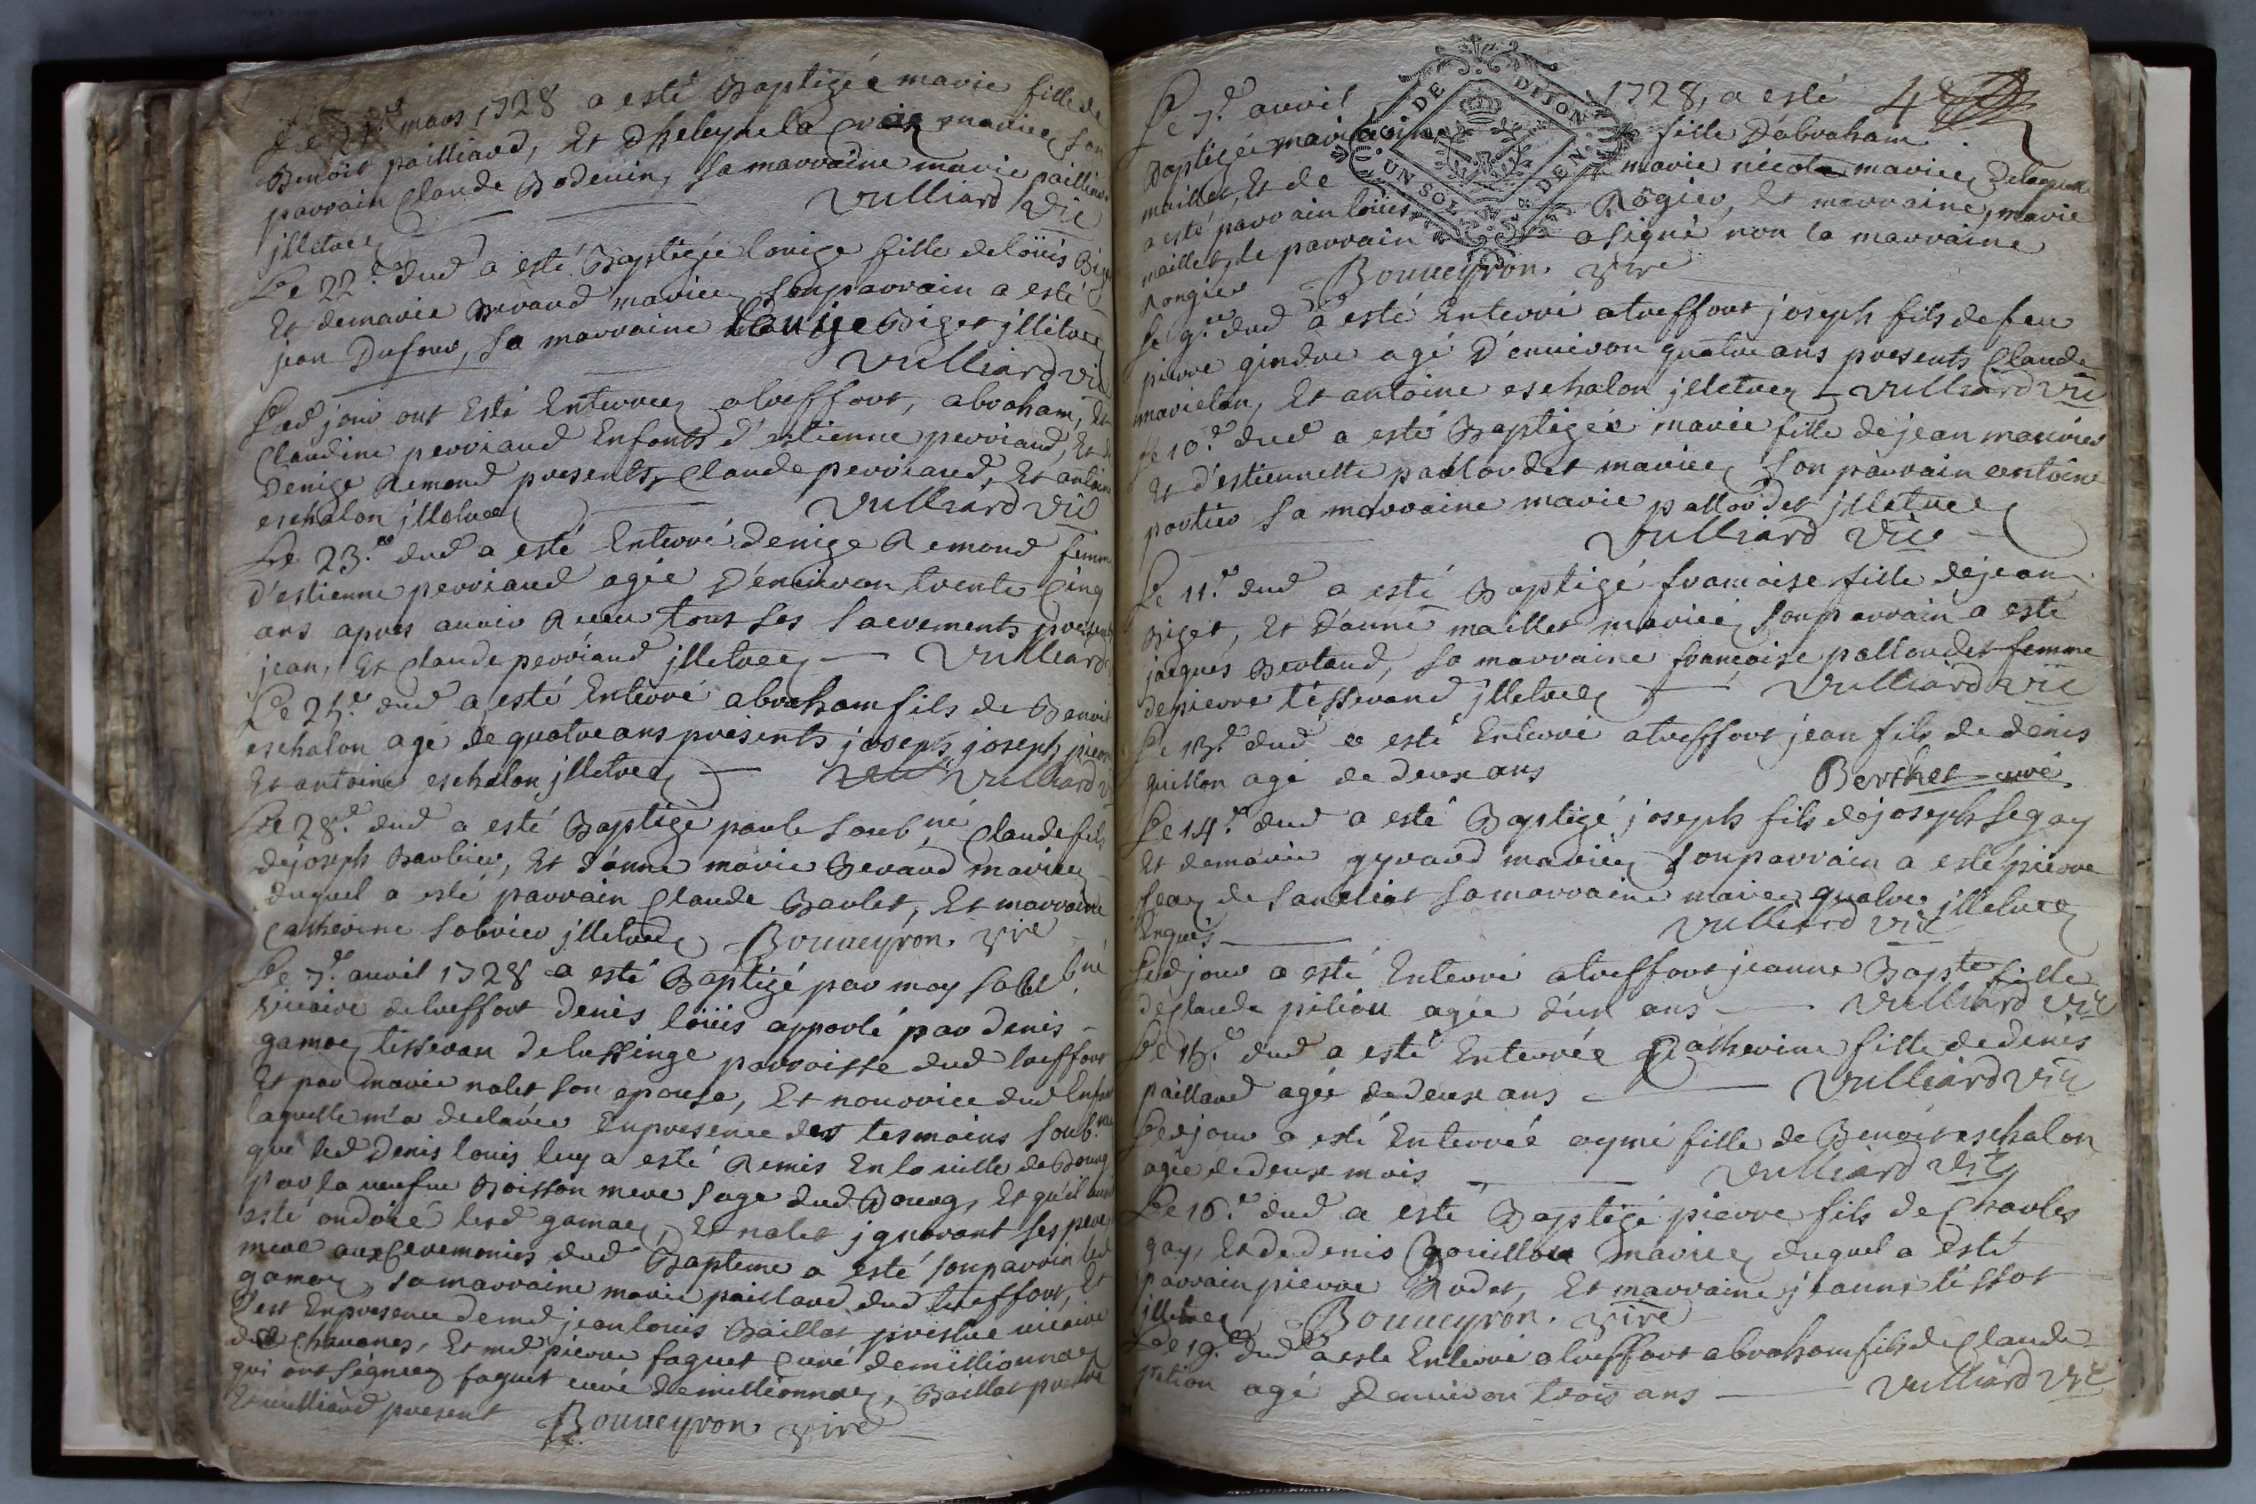 Le 21.e mars 1728 a esté Baptizée marie fille de
Benoit pailliard, Et D'heleyne la Croix mariez son
parrain Claude Bodenin, sa marraine marie paillard
jlletrez Vulliard Vic
Le 22.e dud a esté Baptizée louize fille de loüis Biget
Et de marie Berard mariez son parrain a esté
jean Dufour, sa marraine Louize Biget jlletrez
Vulliard vic
Led jour ont Esté Enterrez a treffort, abraham, Et
Claudine perriand Enfants d'estienne perriand, Et de
Denize Remond presents, Claude perriand, Et antoine
eschalon jlletrez Vulliard Vic
Le 23.e dud a esté Enterré Denize Remond femme
d'estienne perriand agée D'enuiron trente Cinq
ans apres auoir Receu tout ses sacrements presents
jean, Et Claude perriand jlletrez — Vulliard
Le 25.e dud a esté Enterré abraham fils de Benoit
eschalon agé de quatre ans présents joseph, joseph, pierre
Et antoine eschalon jlletrez — Vulliard
Le 28.e dud a esté Baptizé par le soub.né Claude fils
de joseph Barbier, Et d'anne marie Berard mariez
duquel a esté parrain Claude Barlet, Et marraine
Catherine sobrier jlletrez Bouueyron. vire
Le 7.e auril 1728 a esté Baptizé par moy soub.né
vicaire de treffort Denis loüis apporté par denis
gamoz tisseran de lussinge parroisse dud treffort
Et par marie nalet son epouse, Et nourrice dud Enfant
laquelle m'a declarée En presence des tesmoins soub.nez
que led Denis louis luy a esté Remis En la uille de Bourg
par la ueufue Boisson mere sage dud Bourg, Et qu'il auoit
esté ondoïé lesd gamoz, Et nalet jgnorant ses pere
mere aux Ceremonies dud Bapteme a esté son parrain led
gamoz, sa marraine marie paillard dud treffort, Et
C'est En presence de mre jean louis Baillat prestre uicaire
de Chauanes, Et mre pierre faguet Curé de millionnaz
qui ont Signéez faguet curé de millionnaz, Baillat prestre
Et uulliard present Bouueyron vire
Le 7.e auril 1728, a esté 4
Baptizée marie fille D'abraham
maillet, Et de marie nicola mariez De laquelle
a esté parrain loüis Rogier, Et marraine, marie
maillet, le parrain a signé non la marraine
Rongier Bouueyron. vire
Le 9.e dud a esté Enterré a treffort joseph fils de feu
pierre gindre agé D'enuiron quatre ans presents Claude
marielon, Et antoine eschalon jlletrez — Vulliard Vic
Le 10.e dud a esté Baptizée marie fille de jean mauries
Et d'estiennette pallordet mariez son parrain antoine
portier sa marraine marie pallordet jlletrez
Vulliard Vic
Le 11.e dud a esté Baptizé francoise fille de jean
Biget, Et d'anne maillet mariez son parrain a esté
jacques Bertand, sa marraine francoise pallordet femme
de pierre tisserand jlletrez — Vulliard vic
Le 13.e dud a esté Enterré a treffort jean fils de denis
guillon agé de deux ans Berthet curé
Le 14.e dud a esté Baptizé joseph fils de joseph Segay
Et de marie gyrard mariez son parrain a esté pierre
feaz de sanciat sa marraine marie quatre jlletrez
Enquis — Vulliard Vic
Led jour a esté Enterré a treffort jeanne Bapte fille
de Claude pition agée d'un ans — Vulliard Vic
Le 15.e dud a esté Enterrée Catherine fille de denis
paillard agée de deux ans — Vulliard vic
Led jour a esté Enterrée aymé fille de Benoit eschalon
agée de deux mois — Vulliard Vic
Le 16.e dud a esté Baptizé pierre fils de Charles
gay, Et de denis Gouillon mariez duquel a esté
parrain pierre Rudet, Et marraine jeanne tissot
jlletrez Bouueyron. vire
Le 19.e dud a este Enterré a treffort abraham fils de Claude
pition agé D'enuiron trois ans — Vulliard Vic
G. DE DIJON
UN SOL 4 DEN.